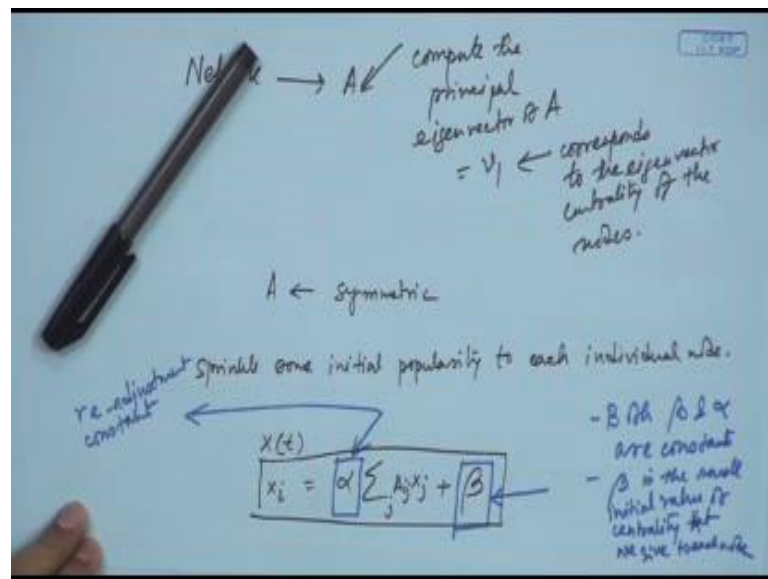 → A
compute the
principal
eigenvector of A
= V1 ← corresponds
to the eigenvector
centrality of the
nodes.
A ← symmetric
Sprinkle some initial popularity to each individual node.
re-adjustment
constant
X(t)
xi = α ∑j Aij xj + β
- Both β & α
are constant
- β is the small
initial value of
centrality that
we give to each node